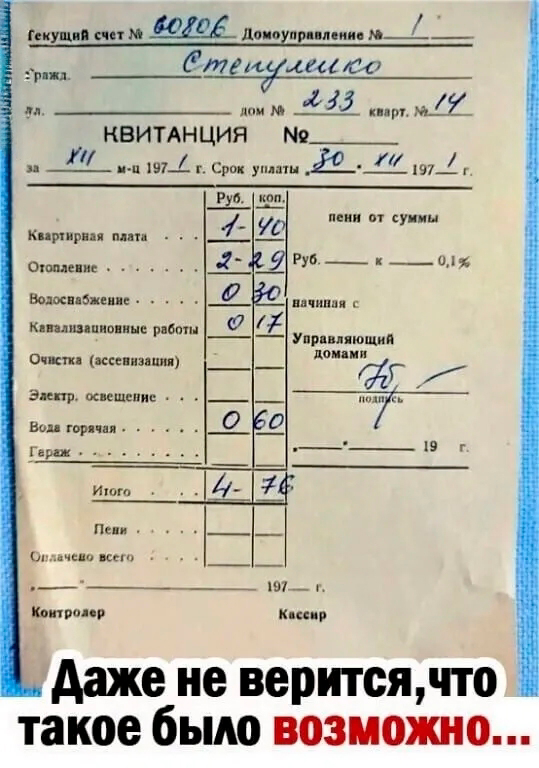 Текущий счет № 60806 Домоуправление № 1
Гражд. Степуленко
ул. дом № 233 кварт. № 14
КВИТАНЦИЯ №
за XII м-ц 1971 г. Срок уплаты „30" XII 1971 г.
Руб. коп.
Квартирная плата . . . 1- 40
Отопление . . . . . . 2- 29
Водоснабжение . . . . . 0 30
Канализационные работы 0 17
Очистка (ассенизация)
Электр. освещение . . .
Вода горячая . . . . . 0 60
Гараж . . . . . . . .
Итого . . . . 4- 76
Пени . . . . .
Оплачено всего . . . .
пени от суммы
Руб. к 0,1%
начиная с
Управляющий
домами
подпись
„ " 19 г.
„ " 197 г.
Контролер Кассир
Даже не верится,что
такое было возможно...